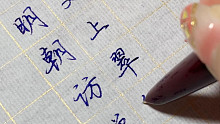 上翠
明朝访